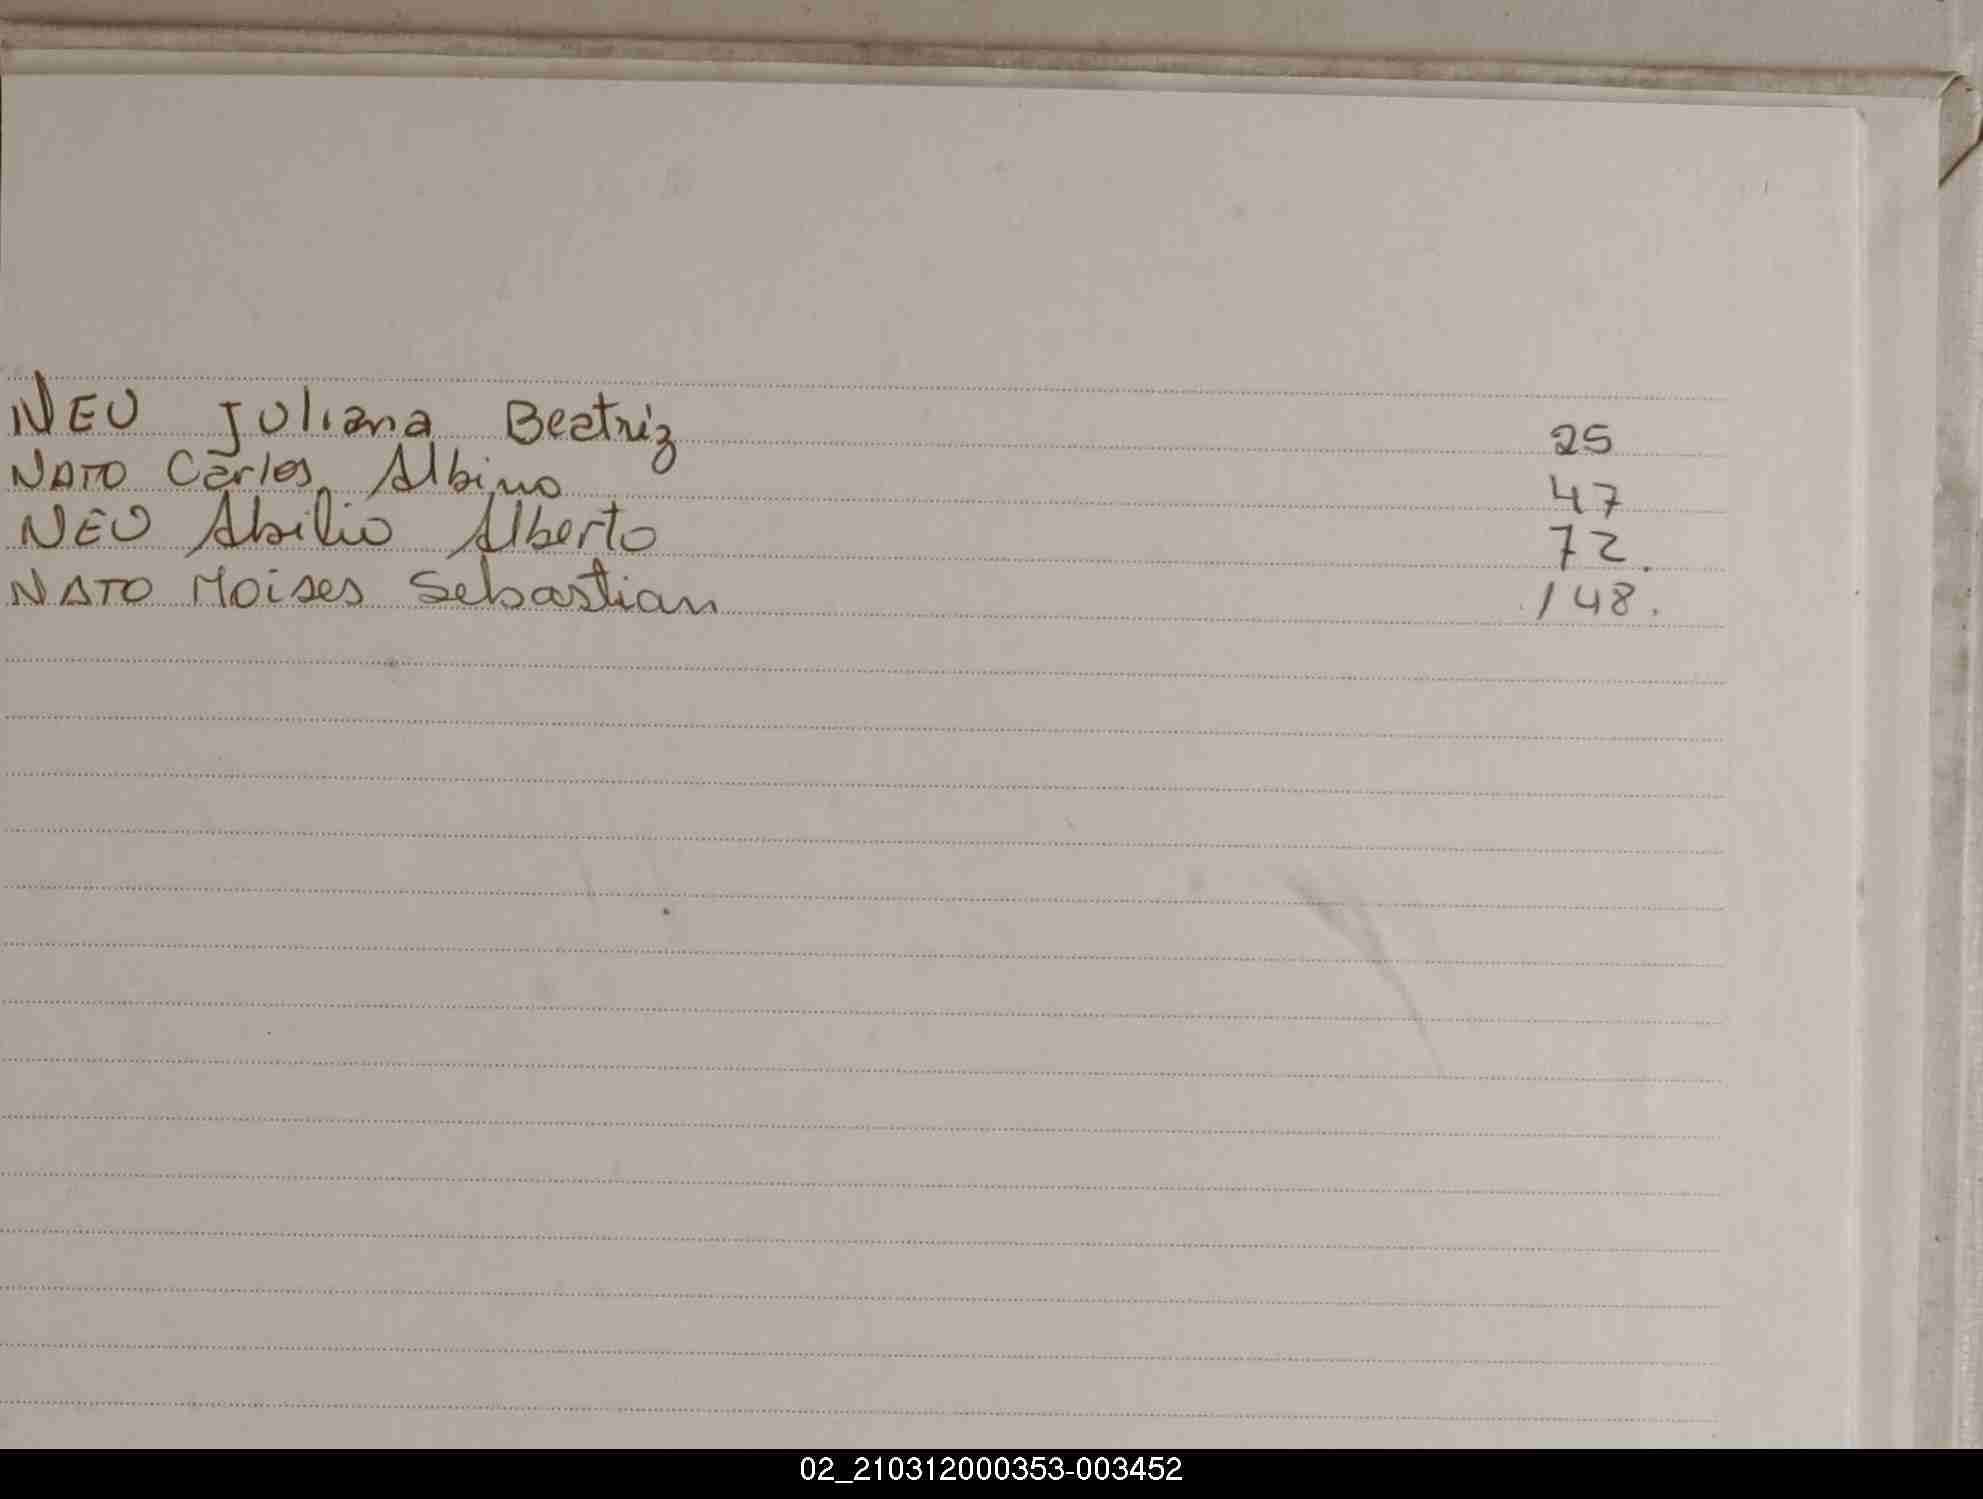 NEU Juliana Beatriz 25
NATO Carlos Albino 47
NEU Abilio Alberto 72.
NATO Moises Sebastian 148.
02_210312000353-003452